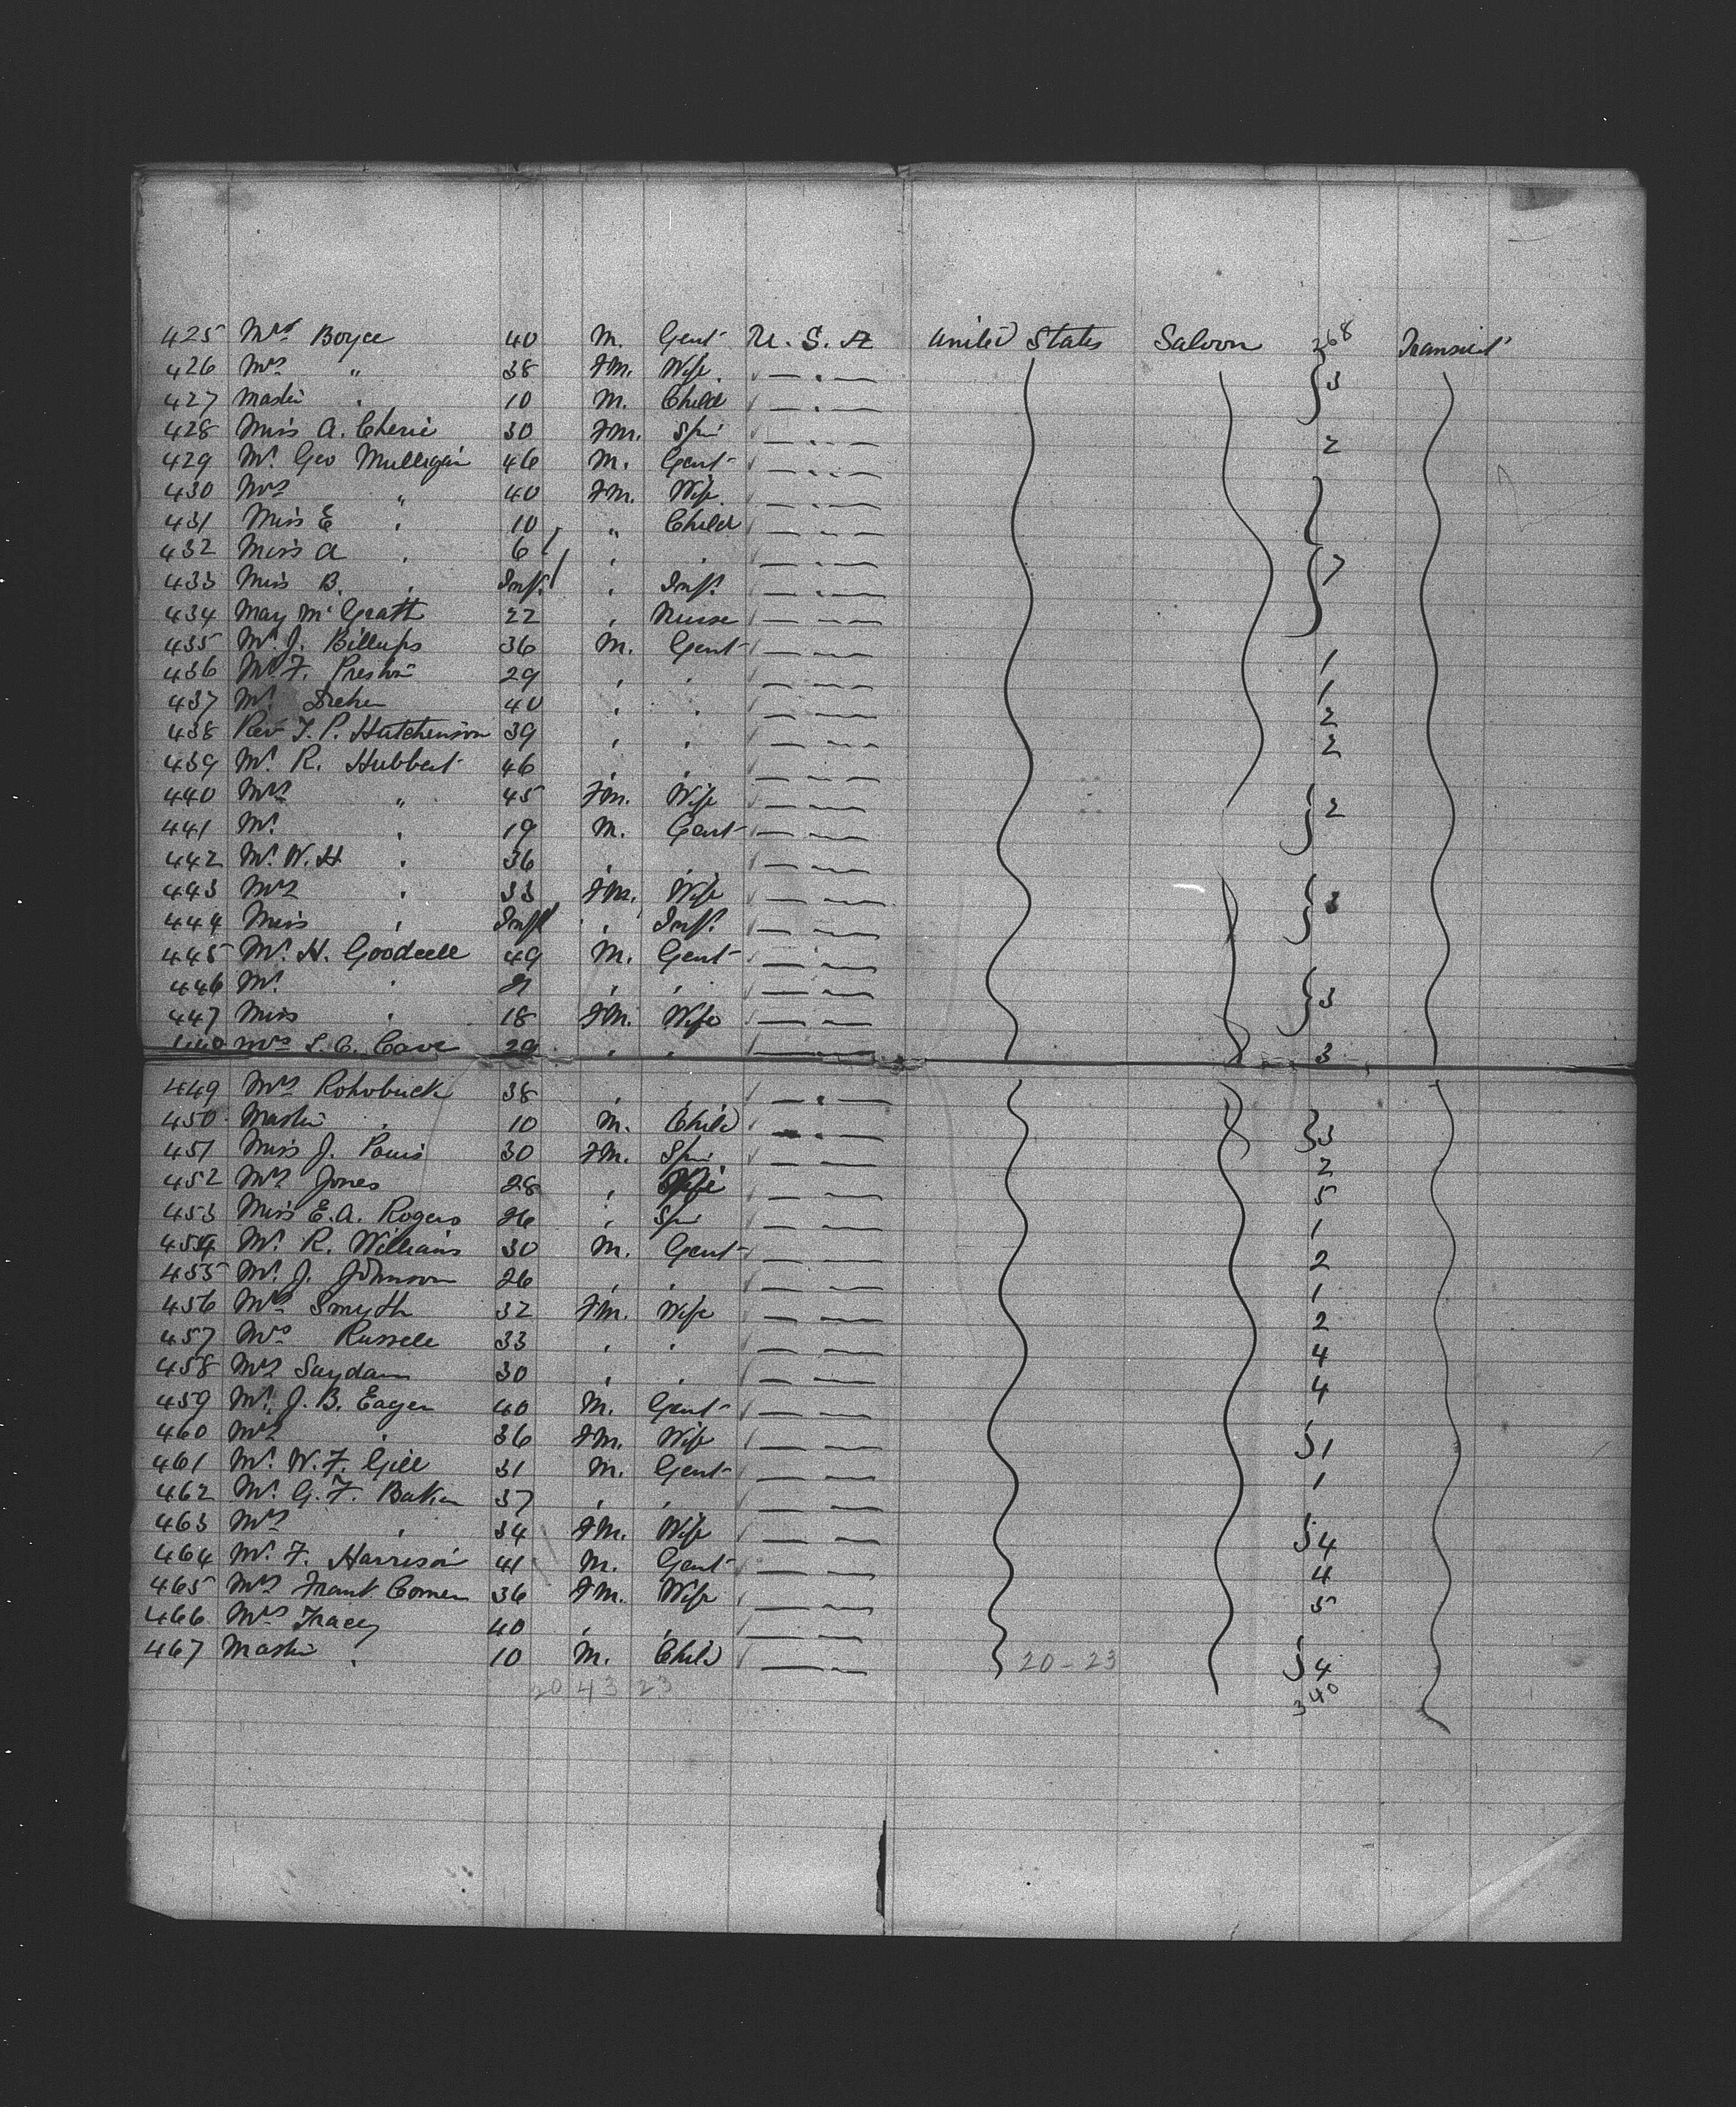 425 Mr Boyce 40 M. Gent U. S. A United States Saloon 268 Transit
426 Mrs " 38 Fm. Wife 3
427 Master " 10 M. Child
428 Miss A. Cherie 30 Fm. Spr 2
429 Mr Geo Mulligan 46 M. Gent
430 Mrs " 40 Fm. Wife
431 Miss E " 10 " Child
432 Miss A " 6 " " 7
433 Miss B. " Inft " Inft
434 May McGrath 22 " Nurse
435 Mr J. Billups 36 M. Gent 1
436 Mr F. Preston 29 " " 1
437 Mr 40 " " 2
438 Rev T. P. Hutchinson 39 " " 2
439 Mr R. Hubbert 46 " "
440 Mrs " 45 Fm. Wife 2
441 Mr " 19 M. Gent
442 Mr W. H " 36 "
443 Mrs " 33 Fm. Wife 3
444 Miss " Inft " Inft
445 Mr H. Goodcell 49 M. Gent
446 Mr " 21 " " 3
447 Miss " 18 Fm. Wife
448 Mrs L. C. Cave 29 " " 3
449 Mrs Rohobuck 38 " "
450 Master " 10 M. Child 3
451 Miss J. 30 Fm. Spr 2
452 Mrs Jones 28 " Wife 5
453 Miss E. A. Rogers 26 " Spr 1
454 Mr R. Williams 30 M. Gent 2
455 Mr J. Johnson 26 " " 1
456 Mrs Smyth 32 Fm. Wife 2
457 Mrs Russell 33 " " 4
458 Mrs Suydam 30 " " 4
459 Mr J. B. Eager 40 M. Gent
460 Mrs " 36 Fm. Wife 1
461 Mr W. F. Gill 31 M. Gent 1
462 Mr G. F. Baker 37 " "
463 Mrs " 34 Fm. Wife 4
464 Mr F. Harrison 41 M. Gent 4
465 Mrs Frank 36 Fm. Wife 5
466 Mrs Tracey 40 " "
467 Master " 10 M. Child 20-23 4
20 43 23 340